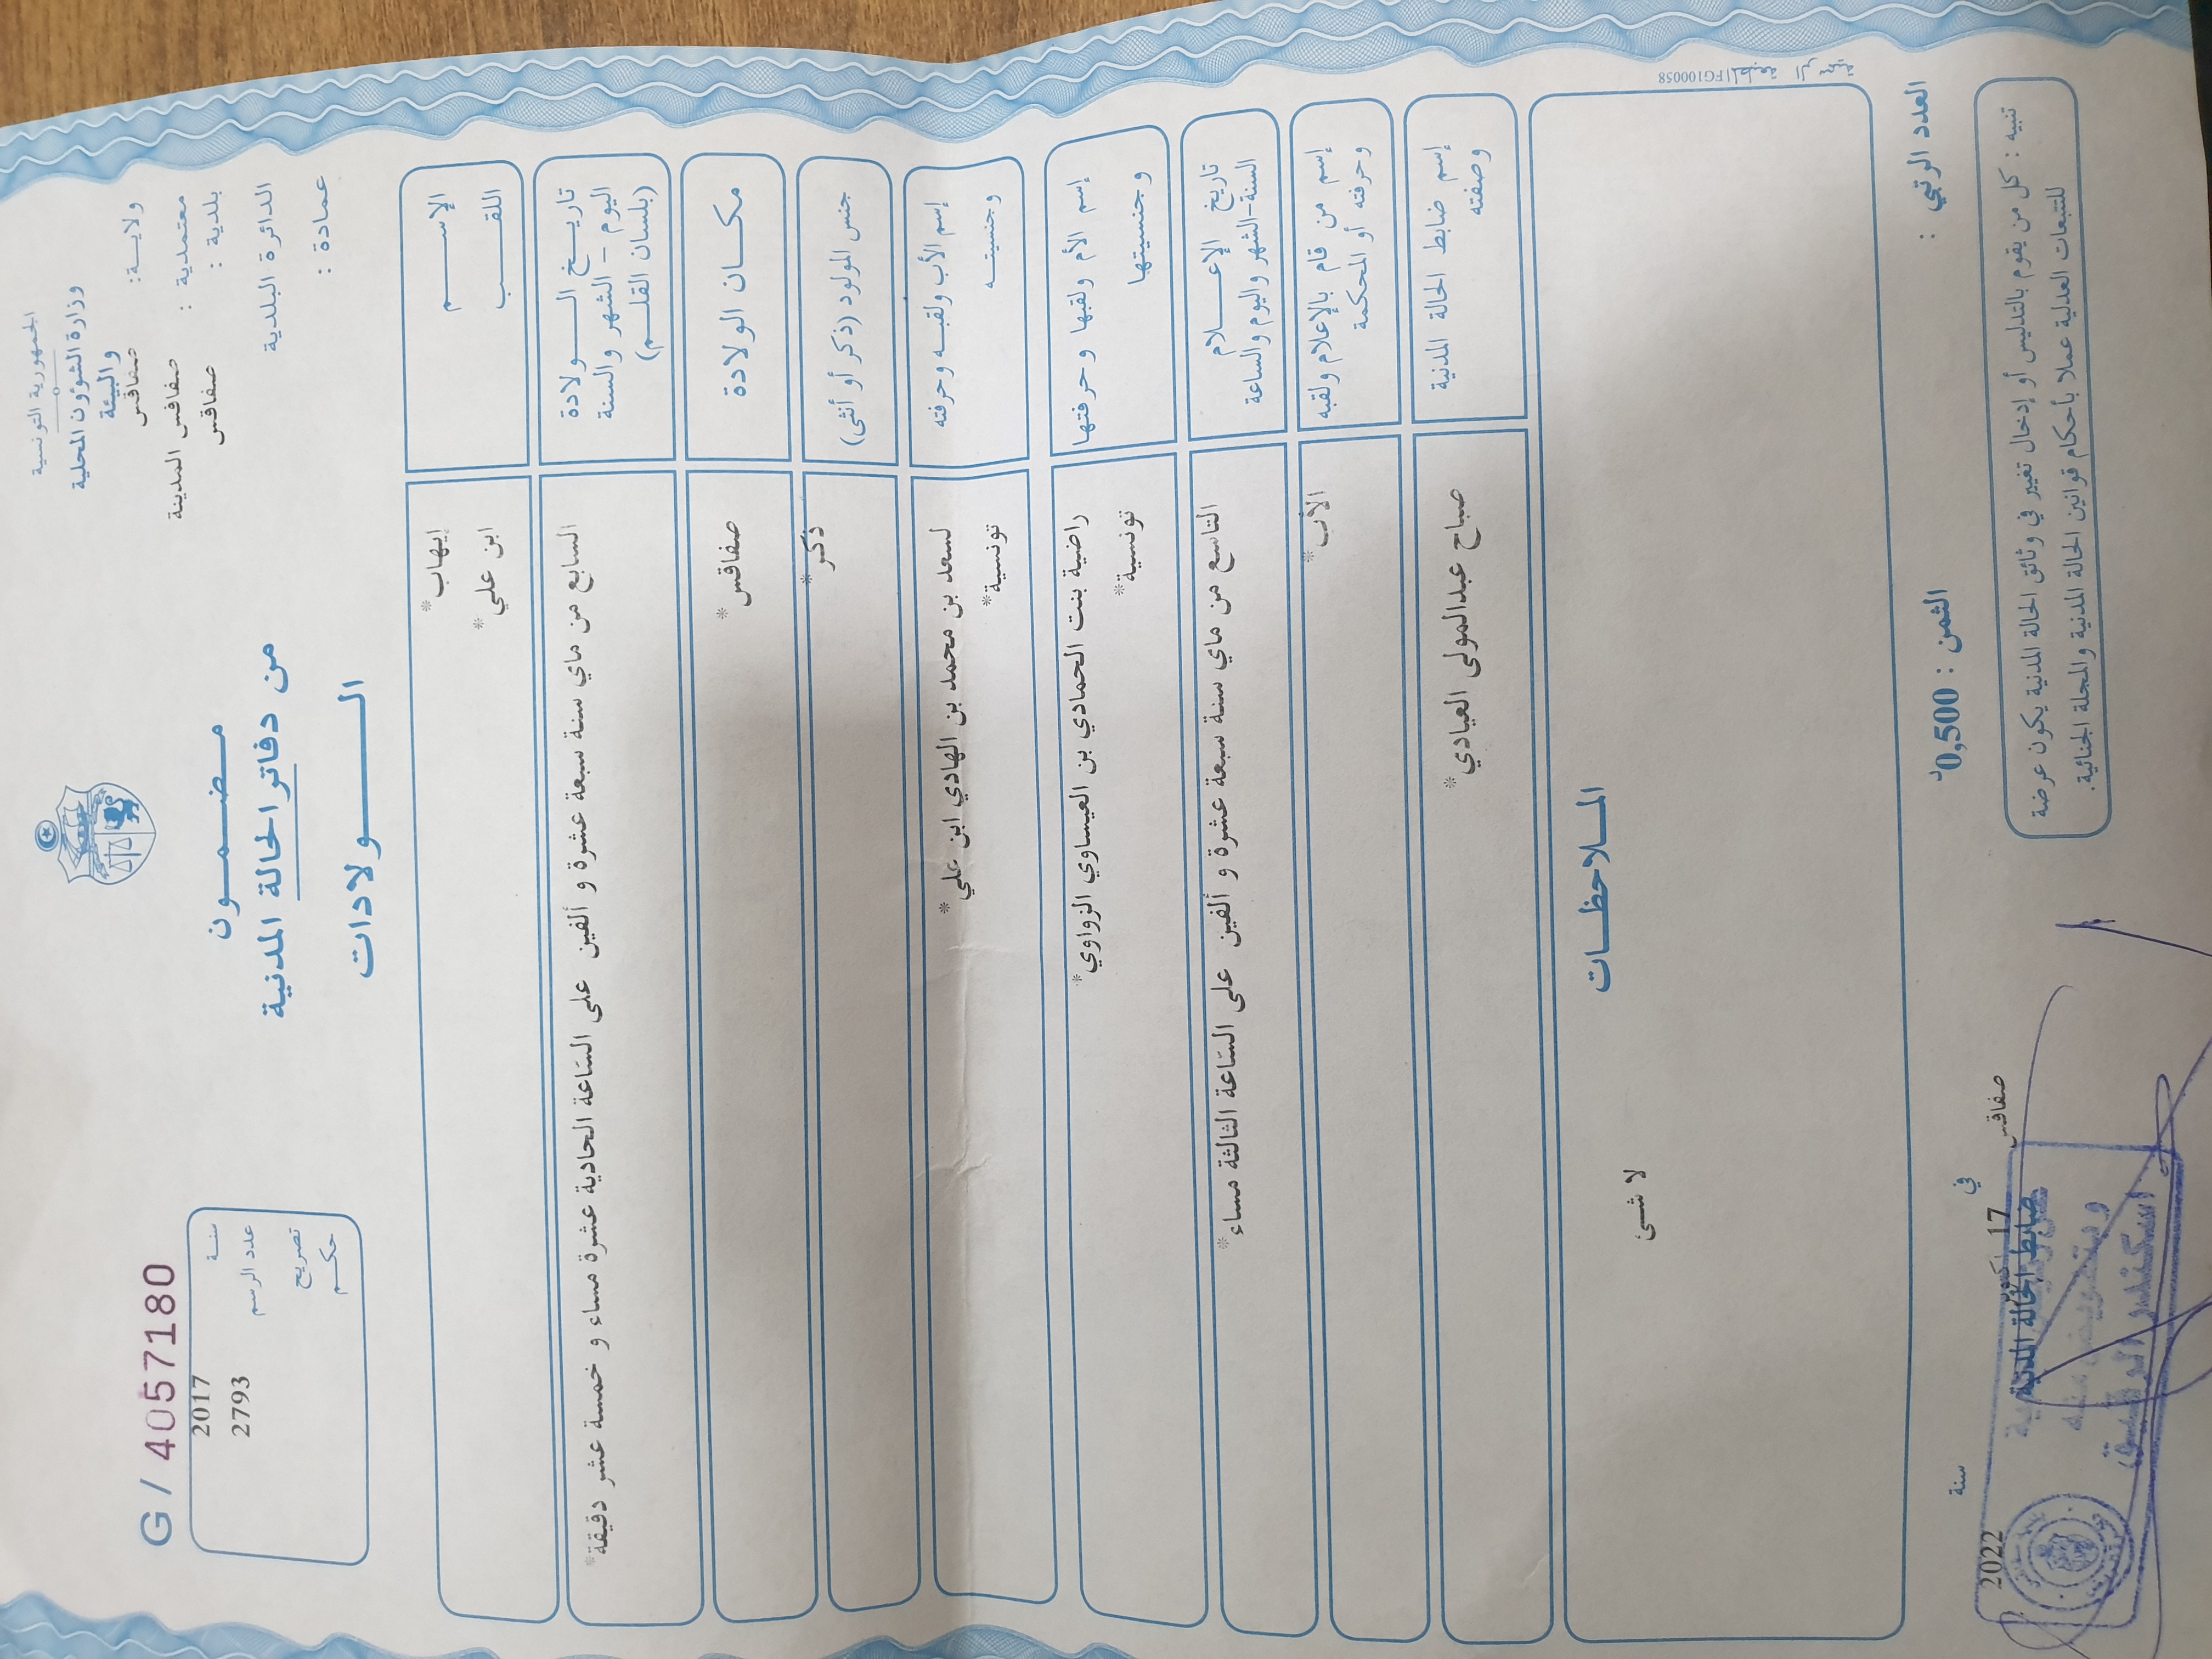 الجمهورية التونسية
وزارة الشؤون المحلية
والبيئة
ولاية: صفاقس
معتمدية : صفاقس المدينة
بلدية : صفاقس
الدائرة البلدية
عمادة :
مضمون
من دفاتر الحالة المدنية
الولادات
G / 4057180
سنة 2017
عدد الرسم 2793
تصريح
حكم
الإسم إيهاب*
اللقب ابن علي*
تاريخ الولادة
اليوم - الشهر والسنة
(بلسان القلم)
السابع من ماي سنة سبعة عشرة و ألفين على الساعة الحادية عشرة مساء و خمسة عشر دقيقة*
مكان الولادة صفاقس*
جنس المولود (ذكر أو أنثى) ذكر*
إسم الأب ولقبه وحرفته لسعد بن محمد بن الهادي ابن علي*
وجنسيته تونسية*
إسم الأم ولقبها وحرفتها راضية بنت الحمادي بن العيساوي الزواوي*
وجنسيتها تونسية*
تاريخ الإعلام
السنة-الشهر واليوم والساعة
التاسع من ماي سنة سبعة عشرة و ألفين على الساعة الثالثة مساء*
إسم من قام بالإعلام ولقبه
وحرفته أو المحكمة
الأب*
إسم ضابط الحالة المدنية
وصفته
صباح عبدالمولى العيادي*
الملاحظات
لا شئ
FG100058
العدد الرتبي :
الثمن : 0,500د
صفاقس في 17 أكتوبر سنة 2022
ضابط الحالة المدنية
وبتفويض منه
تنبيه : كل من يقوم بالتدليس أو إدخال تغيير في وثائق الحالة المدنية يكون عرضة
للتتبعات العدلية عملا بأحكام قوانين الحالة المدنية والمجلة الجنائية.